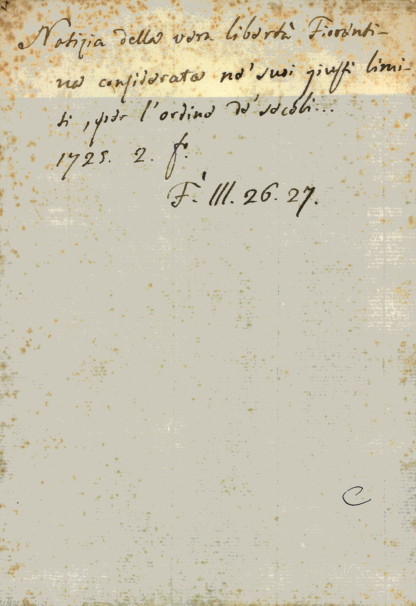 Notizia della vera libertà Fiorenti-
na considerata ne' suoi giusti limi-
ti, per l'ordine de' secoli...
1725. 2. f.
F. III. 26. 27.
C